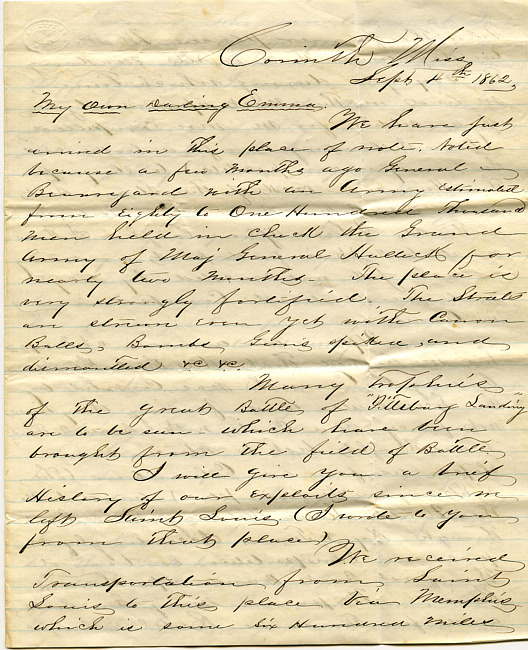 Corinth Miss
Sept 4th 1862,
My Own Darling Emma.
We have just
arrived in this place of note. Noted
because a few months ago General
Beauregard with an Army estimated
from Eighty to One Hundred Thousand
men held in check the Grand
Army of Maj General Halleck for
nearly two months. The place is
very strongly fortified. The Streets
are strewn even yet with Canon
Balls, Bombs, Guns spiked and
dismounted &c &c.
Many Trophies
of the great Battle of "Pittsburg Landing"
are to be seen which have been
brought from the field of Battle
I will give you a brief
History of our exploits since we
left Saint Louis. (I wrote to you
from that place)
We received
Transportation from Saint
Louis to this place via Memphis
which is some Six Hundred miles